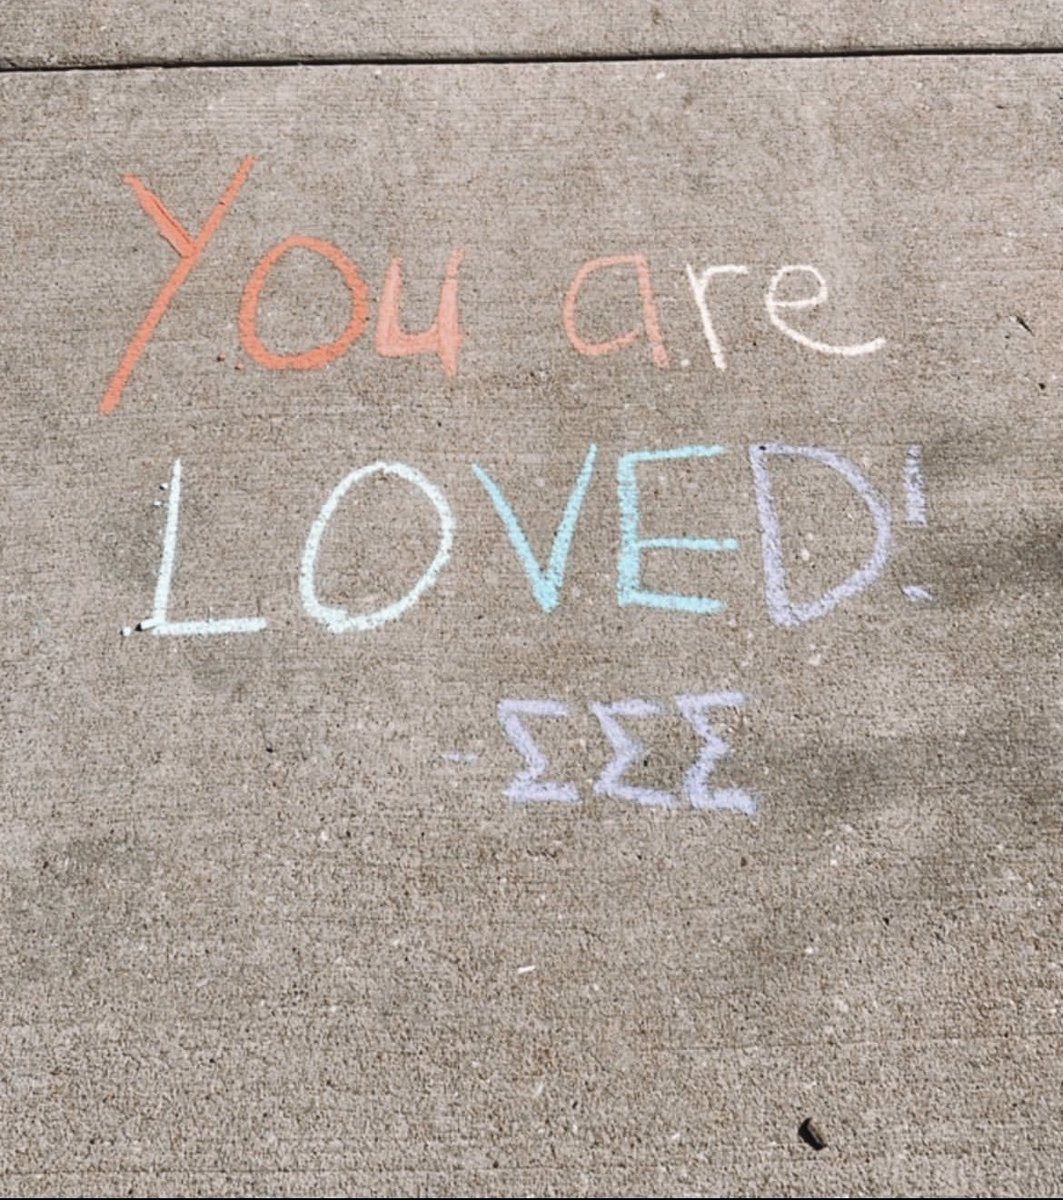 You are
LOVED!
-ΣΣΣ